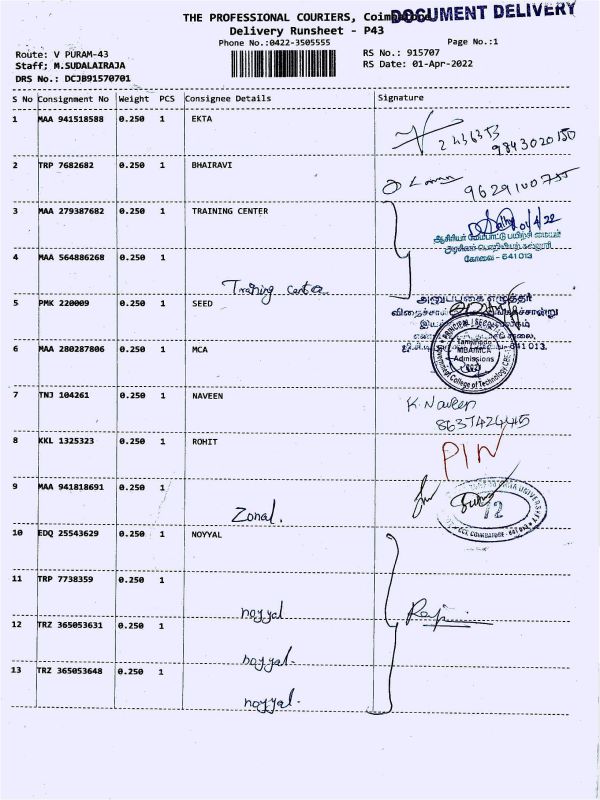 THE PROFESSIONAL COURIERS, Coimbatore
DOCUMENT DELIVERY
Delivery Runsheet - P43
Phone No.:0422-3505555
Page No.:1
Route: V PURAM-43
RS No.: 915707
Staff; M.SUDALAIRAJA
RS Date: 01-Apr-2022
DRS No.: DCJB91570701
S No Consignment No Weight PCS Consignee Details Signature
1 MAA 941518588 0.250 1 EKTA
2436353
9843020150
2 TRP 7682682 0.250 1 BHAIRAVI
9629100755
3 MAA 279387682 0.250 1 TRAINING CENTER
01/4/22
கோவை - 641 013
4 MAA 564886268 0.250 1
Training center
5 PMK 220009 0.250 1 SEED
641 013.
6 MCA MAA 280287806 0.250 1
MBA/MCA
Admissions
Government College of Technology
7 TNJ 104261 0.250 1 NAVEEN
K. Naveen
8637424445
8 KKL 1325323 0.250 1 ROHIT
PIN
9 MAA 941818691 0.250 1
Zonal.
UNIVERSITY
72
COIMBATORE
10 EDQ 25543629 0.250 1 NOYYAL
11 TRP 7738359 0.250 1
noyyal
12 TRZ 365053631 0.250 1
noyyal.
13 TRZ 365053648 0.250 1
noyyal.